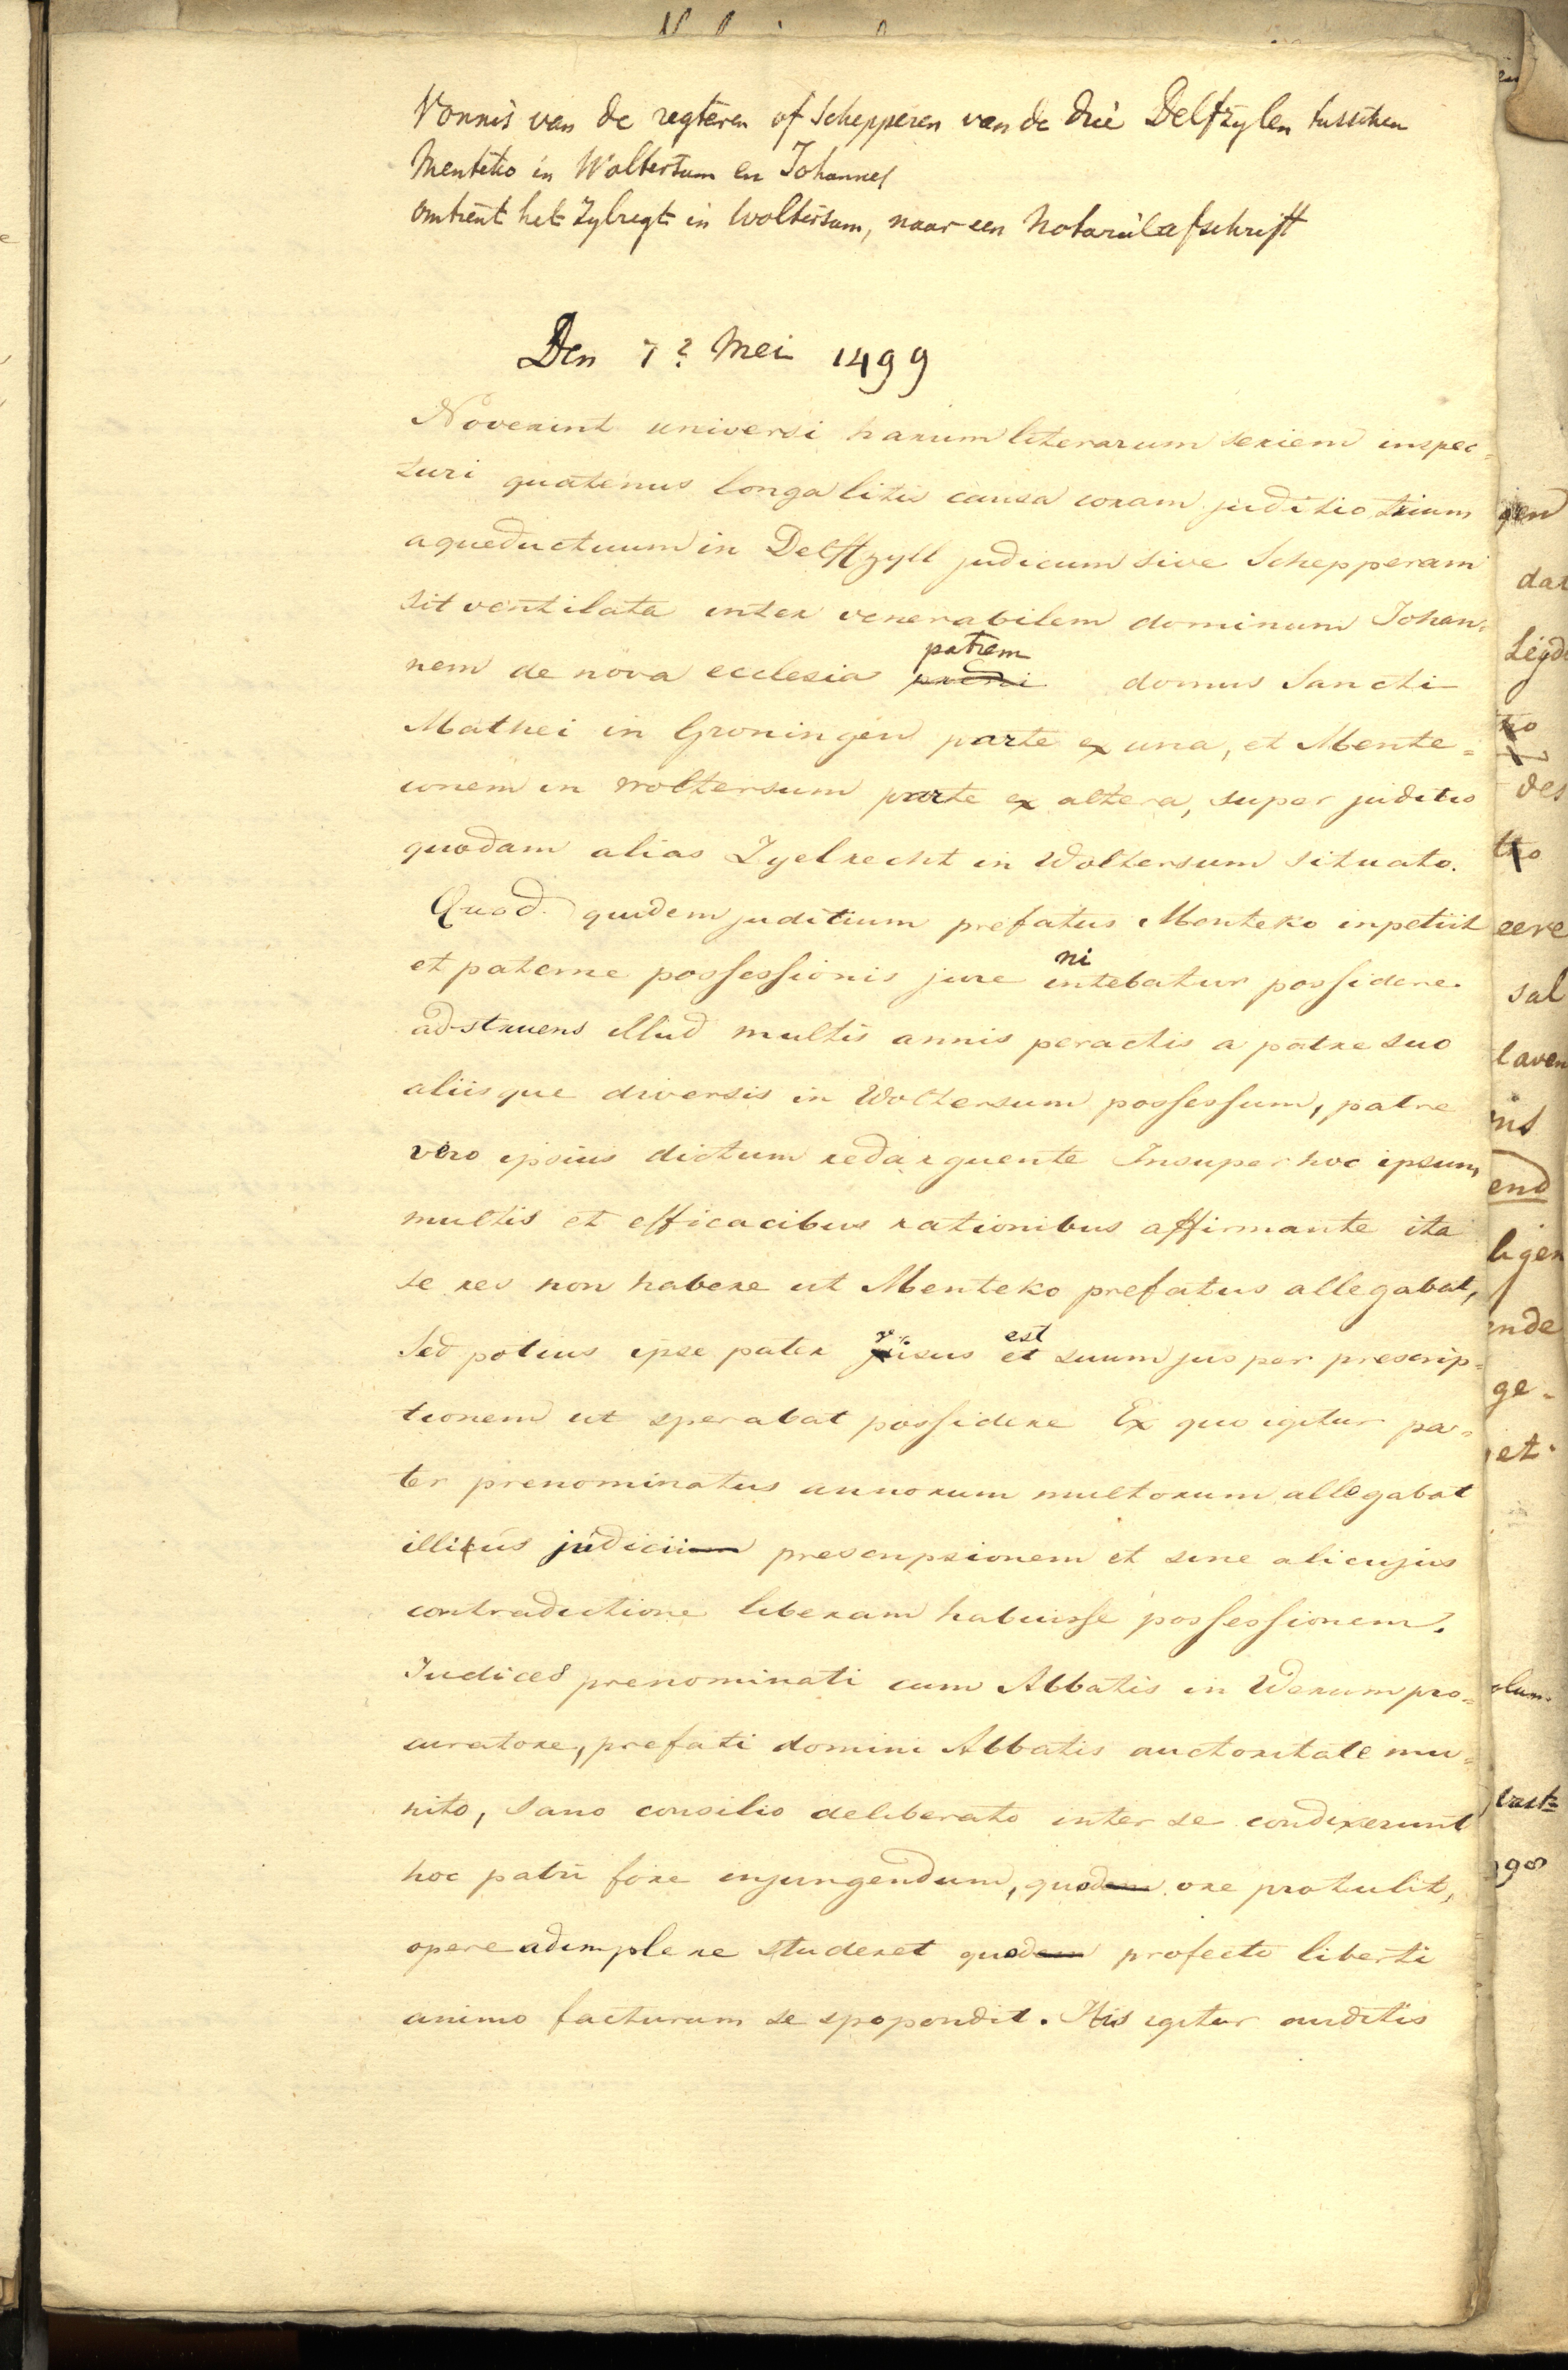 Vonnis van de regteren of Schepperen van de drie Delfzylen tusschen
Menteko in Woltersum en Johannes
omtrent het Zylregt in Woltersum, naar een Notarieel afschrift
Den 7? Mei 1499
Noverint universi harum literarum seriem inspec=
turi quatenus longa litis causa coram juditio trium
aqueductuum in Delftzyll judicum sive Schepperam
sit ventilata inter venerabilem dominum Johan=
nem de nova ecclesia patrem domus Sancti
Mathei in Groningen parte ex una, et Mente=
conem in woltersum parte ex altera, super juditio
quodam alias Zyelrecht in Woltersum situato.
Quod quidem juditium prefatus Menteko inpetiit
et paterne possessionis jure nintebatur possidere.
adstruens illud multis annis peractis a patre suo
aliisque diversis in Woltersum possessum, patre
vero ipsius dictum redarguente Insuper hoc ipsum
multis et efficacibus rationibus affirmante ita
se res non habere ut Menteko prefatus allegabat,
Sed potius ipse pater visus est suum jus per prescrip=
tionem ut sperabat possidere Ex quo igitur pa=
ter prenominatus annorum multorum allegabat
illius judicii prescripsionem et sine alicujus
contradictione liberam habuisse possessionem.
Iudices prenominati cum Abbatis in Werum pro=
curatore, prefati domini Abbatis auctoritate mu=
nito, sano consilio deliberato inter se condixerunt
hoc patri fore injungendum, quod ore protulit,
opere adimplere studeret quod profecto liberti
animo facturum se spopondit. His igitur auditis